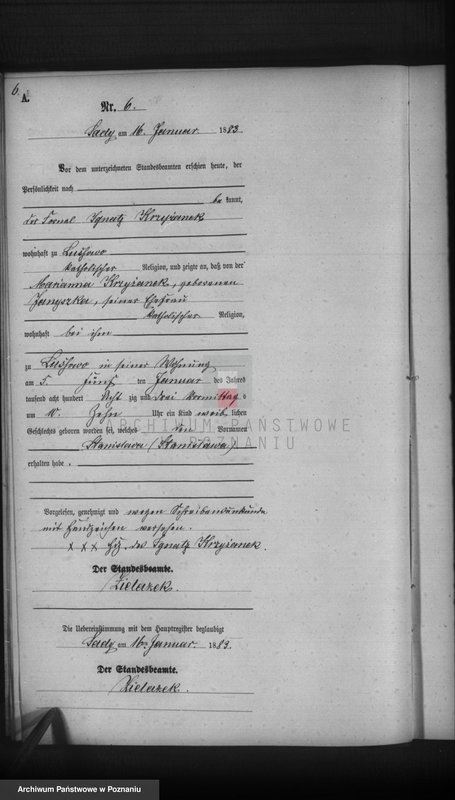 6.
A.
Nr. 6.
Sady am 16. Januar 1883.
Vor dem unterzeichneten Standesbeamten erschien heute, der
Persönlichkeit nach
bekannt,
der Fornal Ignatz Krzyżanek
wohnhaft zu Lussowo
katholischer Religion, und zeigte an, daß von der
Marianna Krzyżanek, geborenen
Janyszka, seiner Ehefrau
katholischer Religion,
wohnhaft bei ihm
zu Lussowo in seiner Wohnung
am 5. fünf ten Januar des Jahres
tausend acht hundert Acht zig und drei Vormittags
um 10. Zehn Uhr ein Kind weib lichen
Geschlechts geboren worden sei, welches den Vornamen
Stanislawa (Stanisława)
erhalten habe.
Vorgelesen, genehmigt und wegen Schreibensunkunde
mit Handzeichen versehen.
x x x Hz. des Ignatz Krzyżanek.
Der Standesbeamte.
Zielazek.
Die Uebereinstimmung mit dem Hauptregister beglaubigt
Sady am 16ten Januar 1883.
Der Standesbeamte.
Zielazek.
ARCHIWUM PAŃSTWOWE
POZNANIU
Archiwum Państwowe w Poznaniu